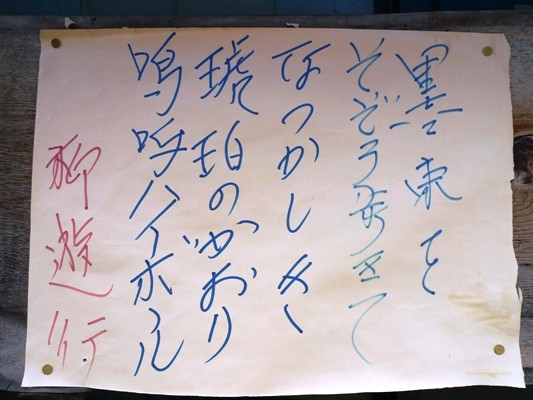 墨東を
そぞろ歩きて
なつかしき
琥珀のかおり
嗚呼ハイボール
柳遊行